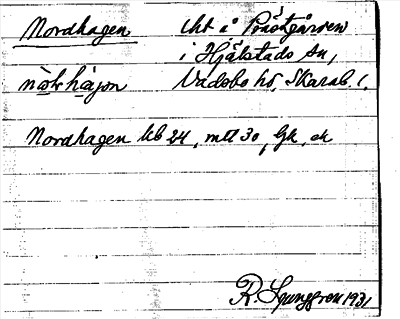 Nordhagen lht å Prästgården
i Hjälstads sn,
Vadsbo hd, Skarab. l.
Nordhagen kb 24, mtl 30, Gk, ek
R. Ljunggren 1931